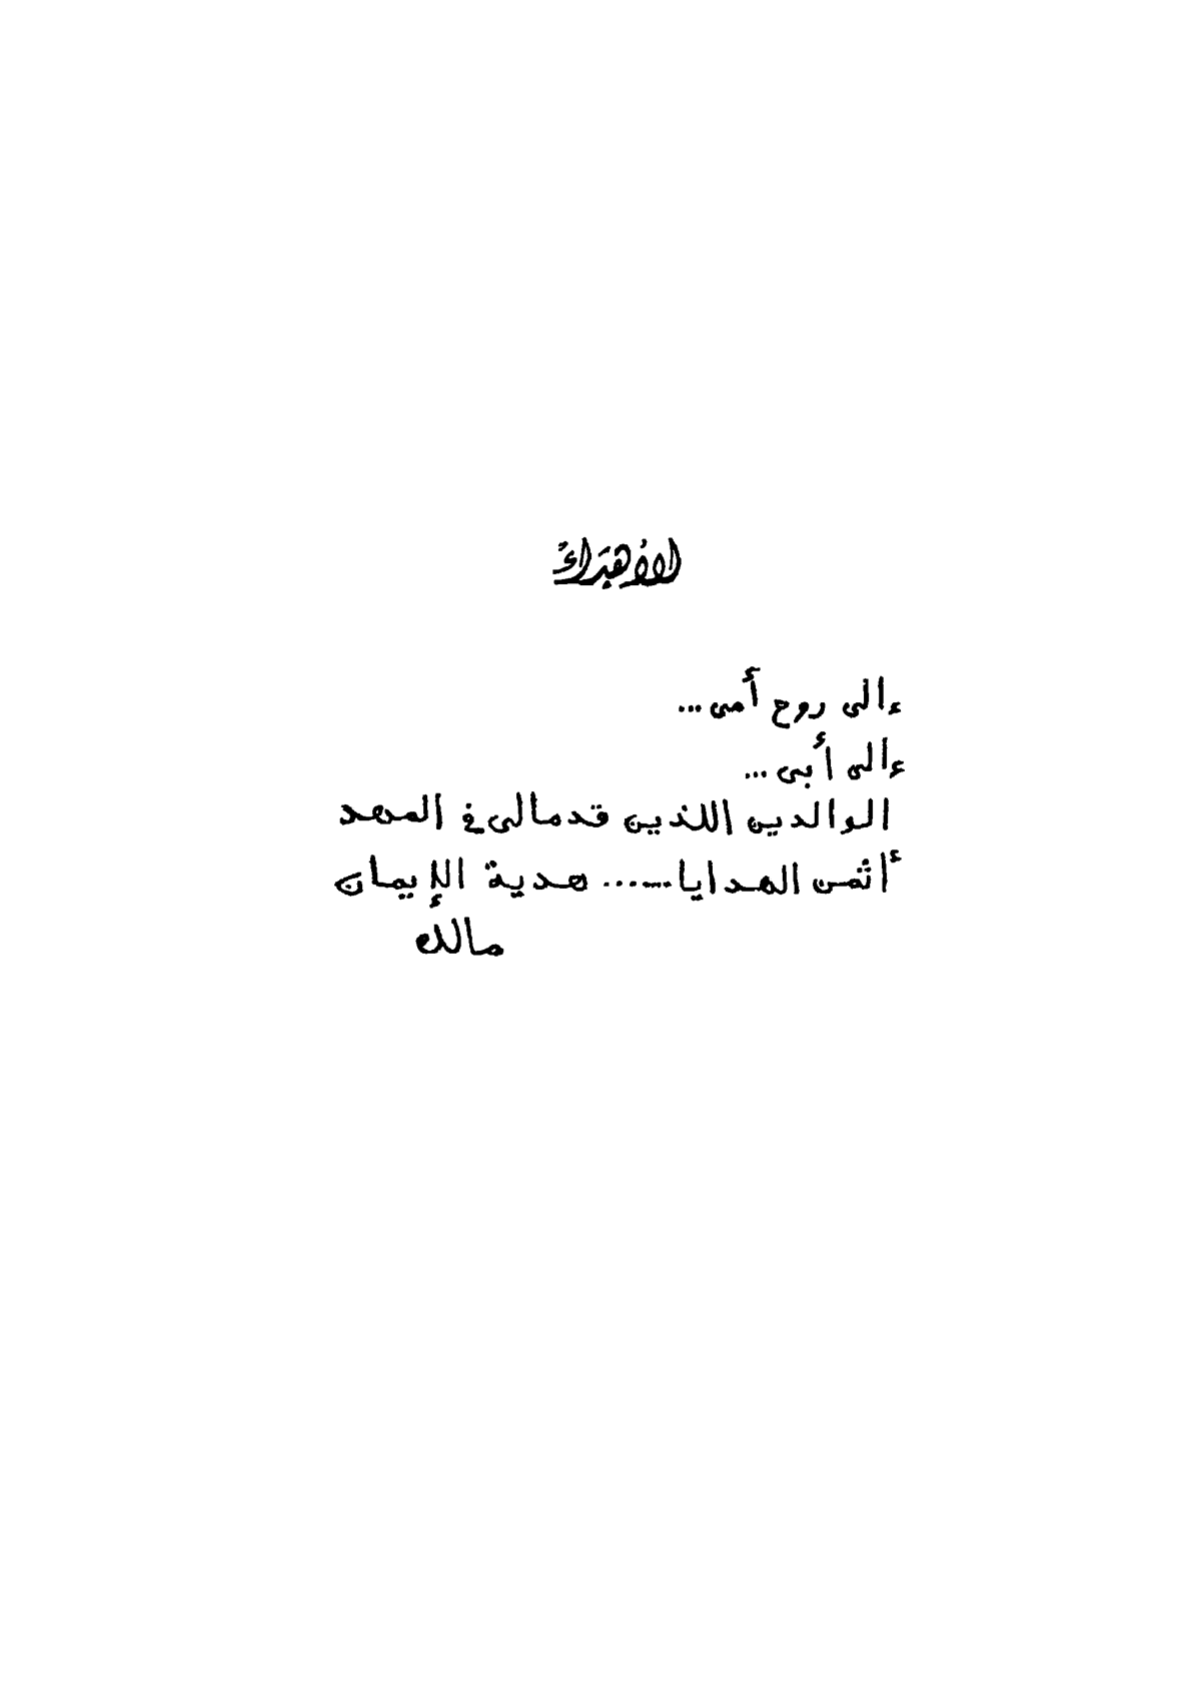 الإهداء
إلى روح أمى ...
إلى أبى ...
الوالدين اللذين قدما لى في المهد
أثمن الهدايا ...... هدية الإيمان
مالك